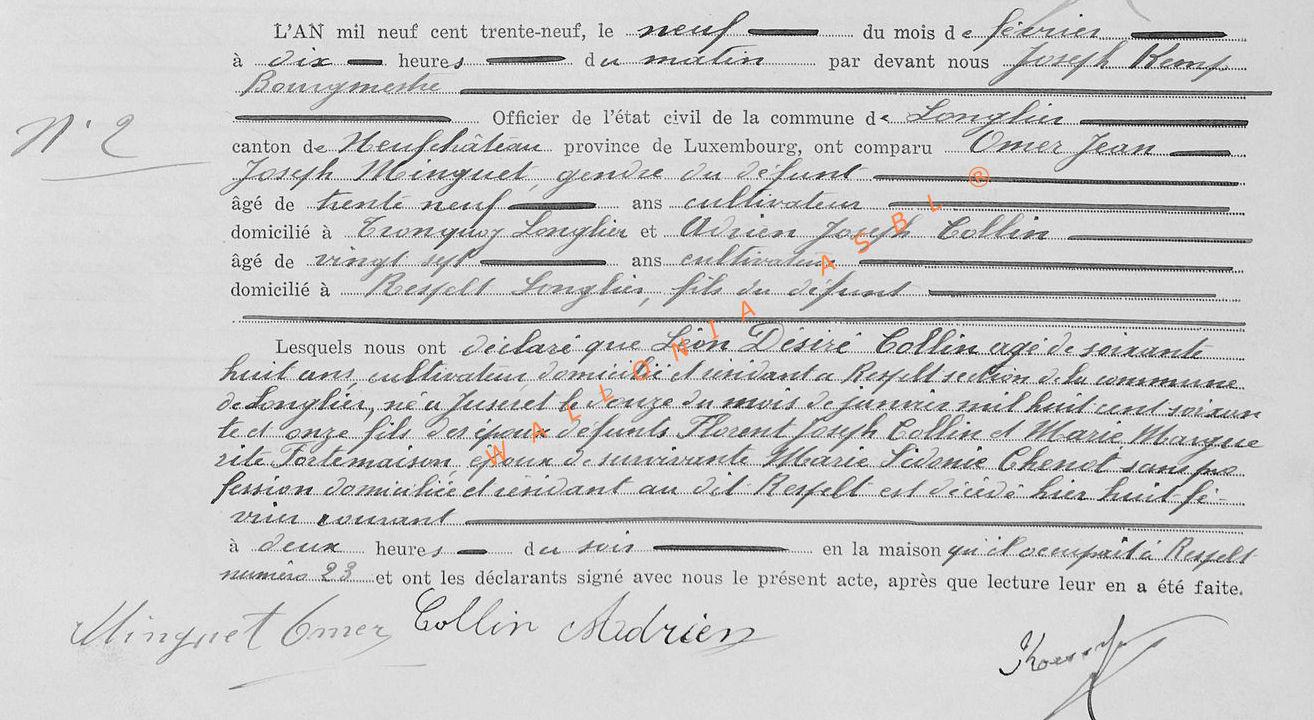 L'AN mil neuf cent trente-neuf, le neuf du mois de février
à dix heures du matin par devant nous Joseph Kemp
Bourgmestre
Officier de l'état civil de la commune de Longlier
N° 2
canton de Neufchâteau province de Luxembourg, ont comparu Omer Jean
Joseph Minguet, gendre du défunt
âgé de trente neuf ans cultivateur
domicilié à Tronquoy Longlier et Adrien Joseph Collin
âgé de vingt sept ans cultivateur
domicilié à Respelt Longlier, fils du défunt
Lesquels nous ont déclaré que Léon Désiré Collin agé de soixante
huit ans, cultivateur, domicilié et résidant a Respelt section de la commune
de Longlier, né a Juseret le douze du mois de janvier mil huit cent soixan
te et onze fils des époux défunts Florent Joseph Collin et Marie Margue
rite Fortemaison, époux de survivante Marie Sidonie Chenot sans pro
fession domiciliée et résidant au dit Respelt est décédé hier huit fé-
vrier courant
à deux heures du soir en la maison qu'il occupait à Respelt
numéro 23 et ont les déclarants signé avec nous le présent acte, après que lecture leur en a été faite.
Minguet Omer Collin Adrien
WALLONIA ASBL ®